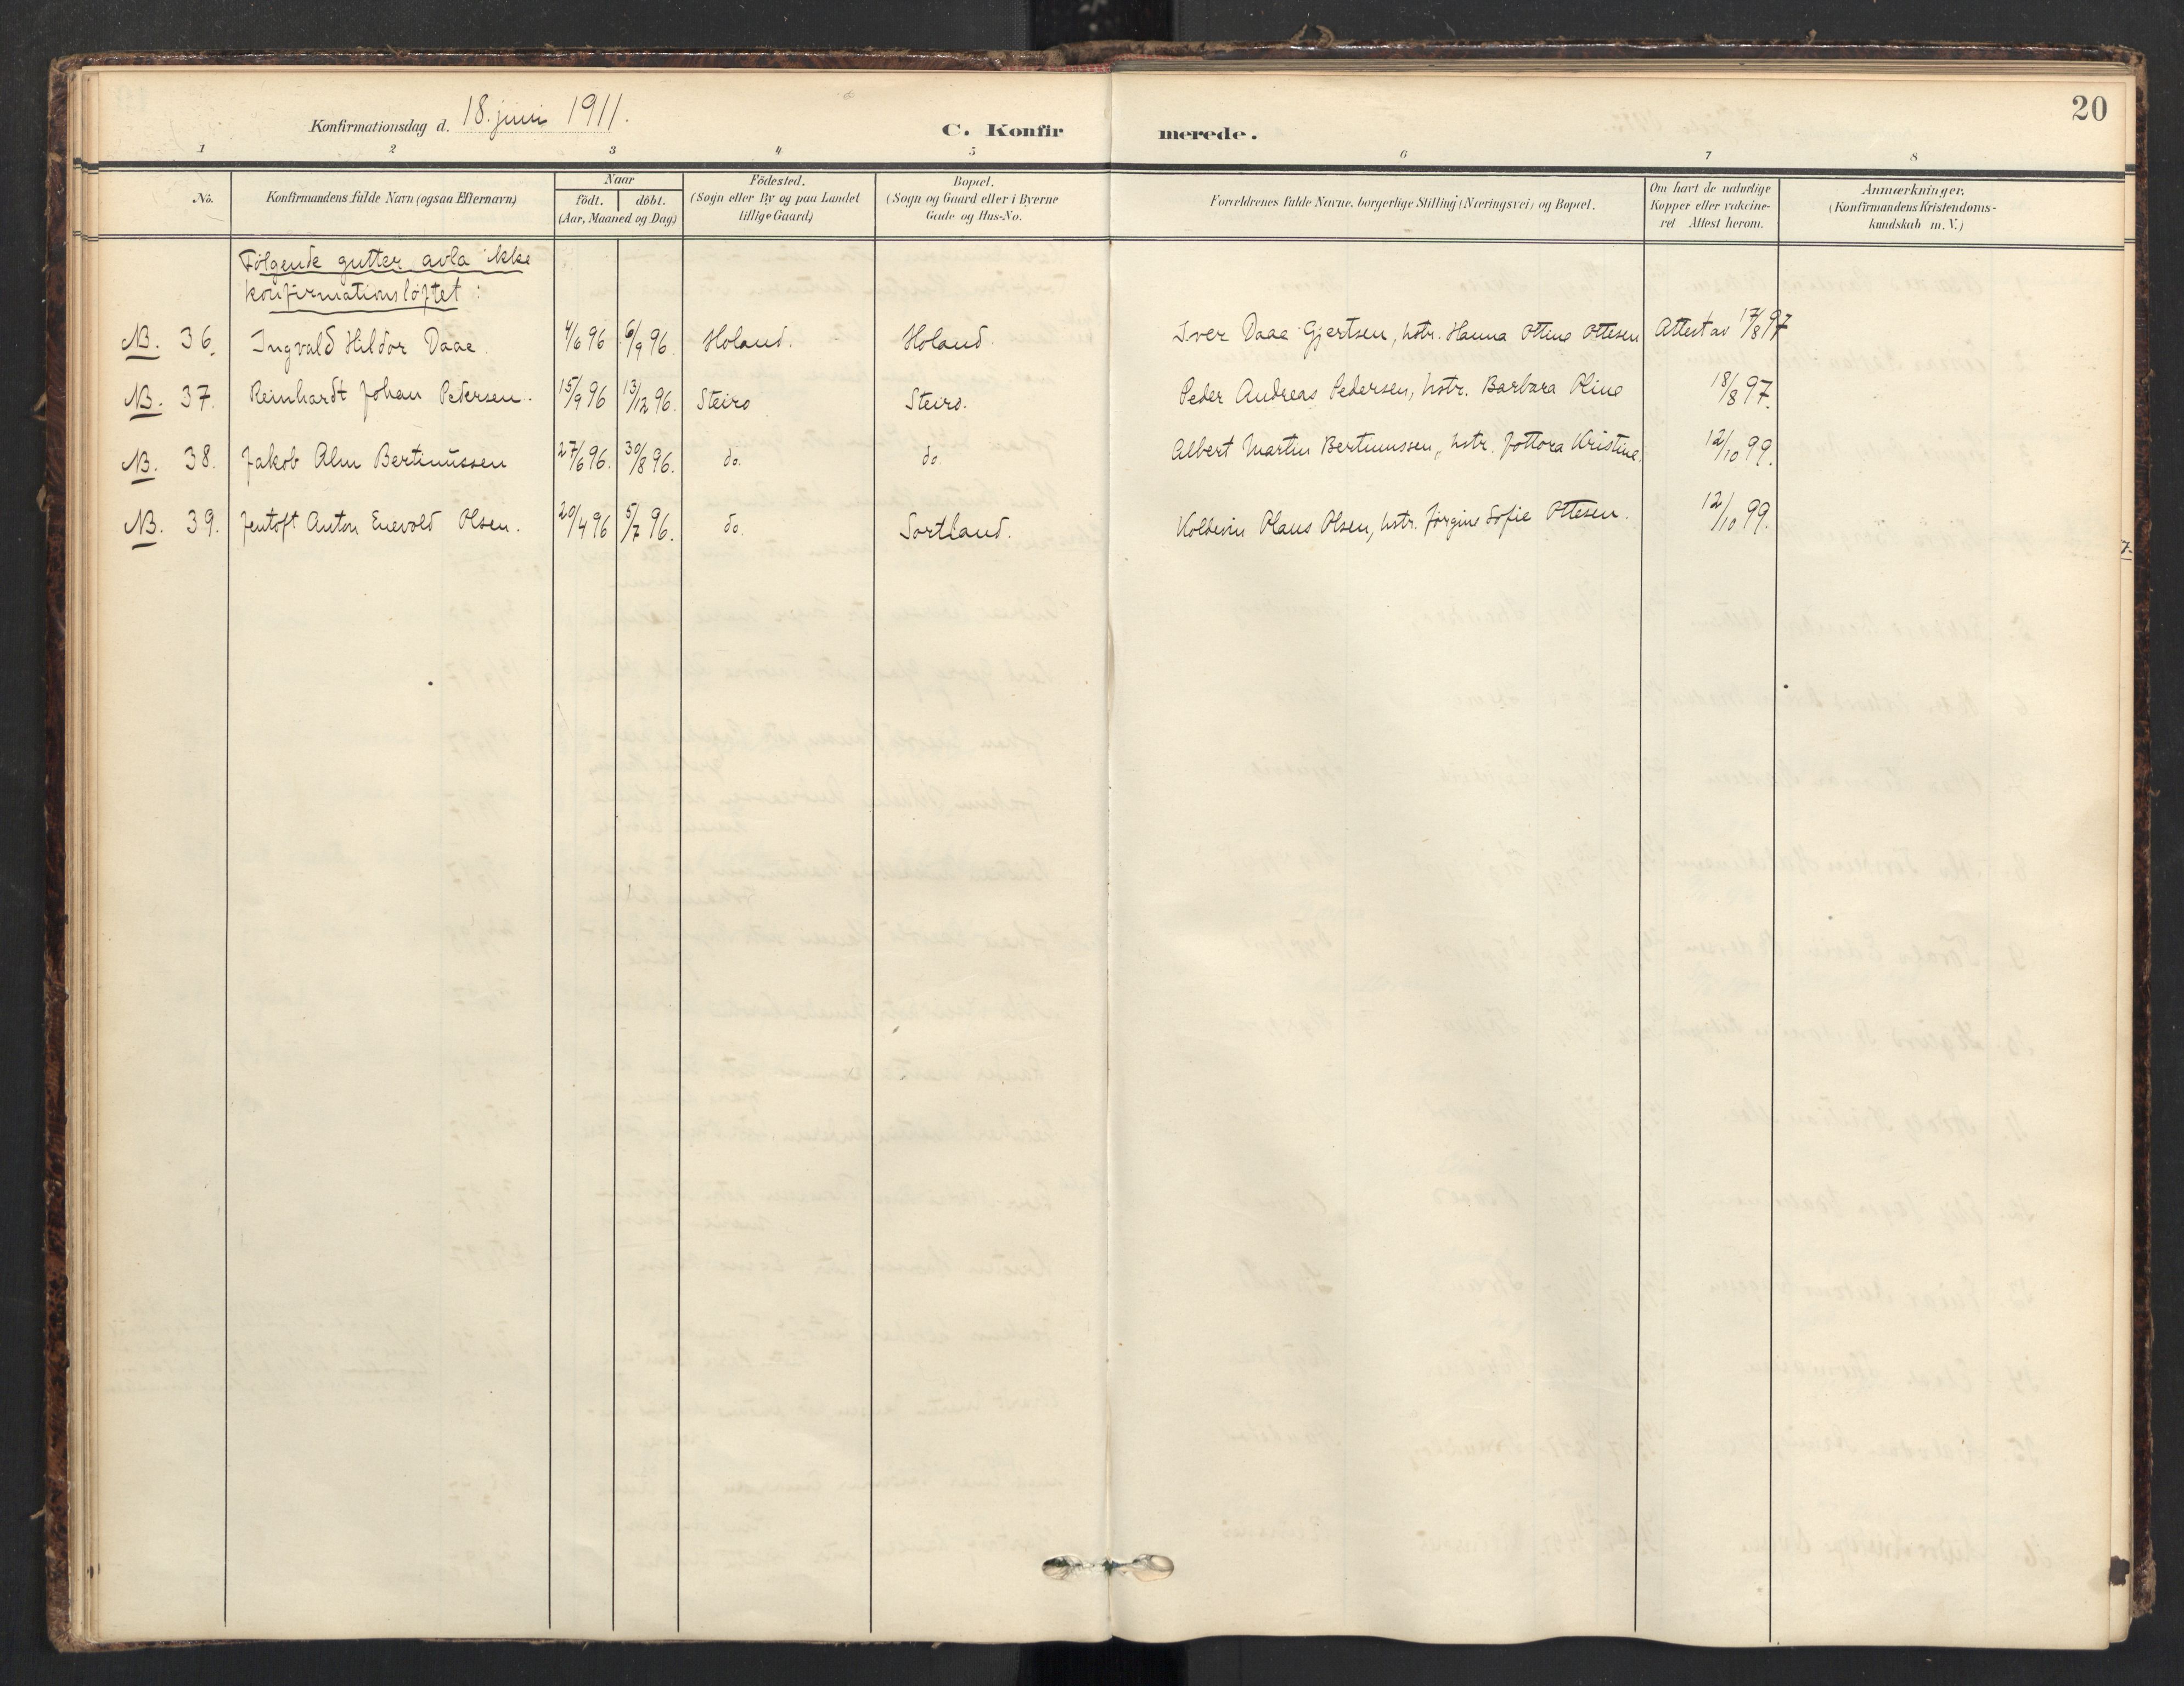 20
Konfirmationsdag d. 18. juni 1911.
C. Konfirmerede.
1 2 3 4 5 6 7 8
No.
Konfirmandens fulde Navn (ogsaa Efternavn)
Naar
födt. döbt.
(Aar, Maaned og Dag)
Födested.
(Sogn eller By og paa Landet
tillige Gaard)
Bopæl.
(Sogn og Gaard eller i Byerne
Gade og Hus-No.
Forældrenes fulde Navne, borgerlige Stilling (Næringsvei) og Bopæl.
Om havt de naturlige
Kopper eller vakcine-
ret Attest herom.
Anmærkninger.
(Konfirmandens Kristendoms-
kundskab m. V.)
Følgende gutter avla ikke
konfirmationsløftet:
NB. 36. Ingvald Hildor Daae. 4/6 96 6/9 96. Holand. Holand. Iver Daae Gjertsen, hstr. Hanna Ottine Ottesen Attest av 17/8 97
NB. 37. Reinhardt Johan Pedersen. 15/9 96 13/12 96. Steiro Steiro. Peder Andreas Pedersen, hstr. Barbara Oline 18/8 97.
NB. 38. Jakob Alm Bertinussen 27/6 96. 30/8 96. do. do Albert Martin Bertinussen, hstr. Jottora Kristine. 12/10 99.
NB. 39. Jentoft Anton Enevold Olsen. 20/4 96 5/7 96. do. Sortland. Kolbein Olaus Olsen, hstr. Jørgine Sofie Ottesen. 12/10 99.